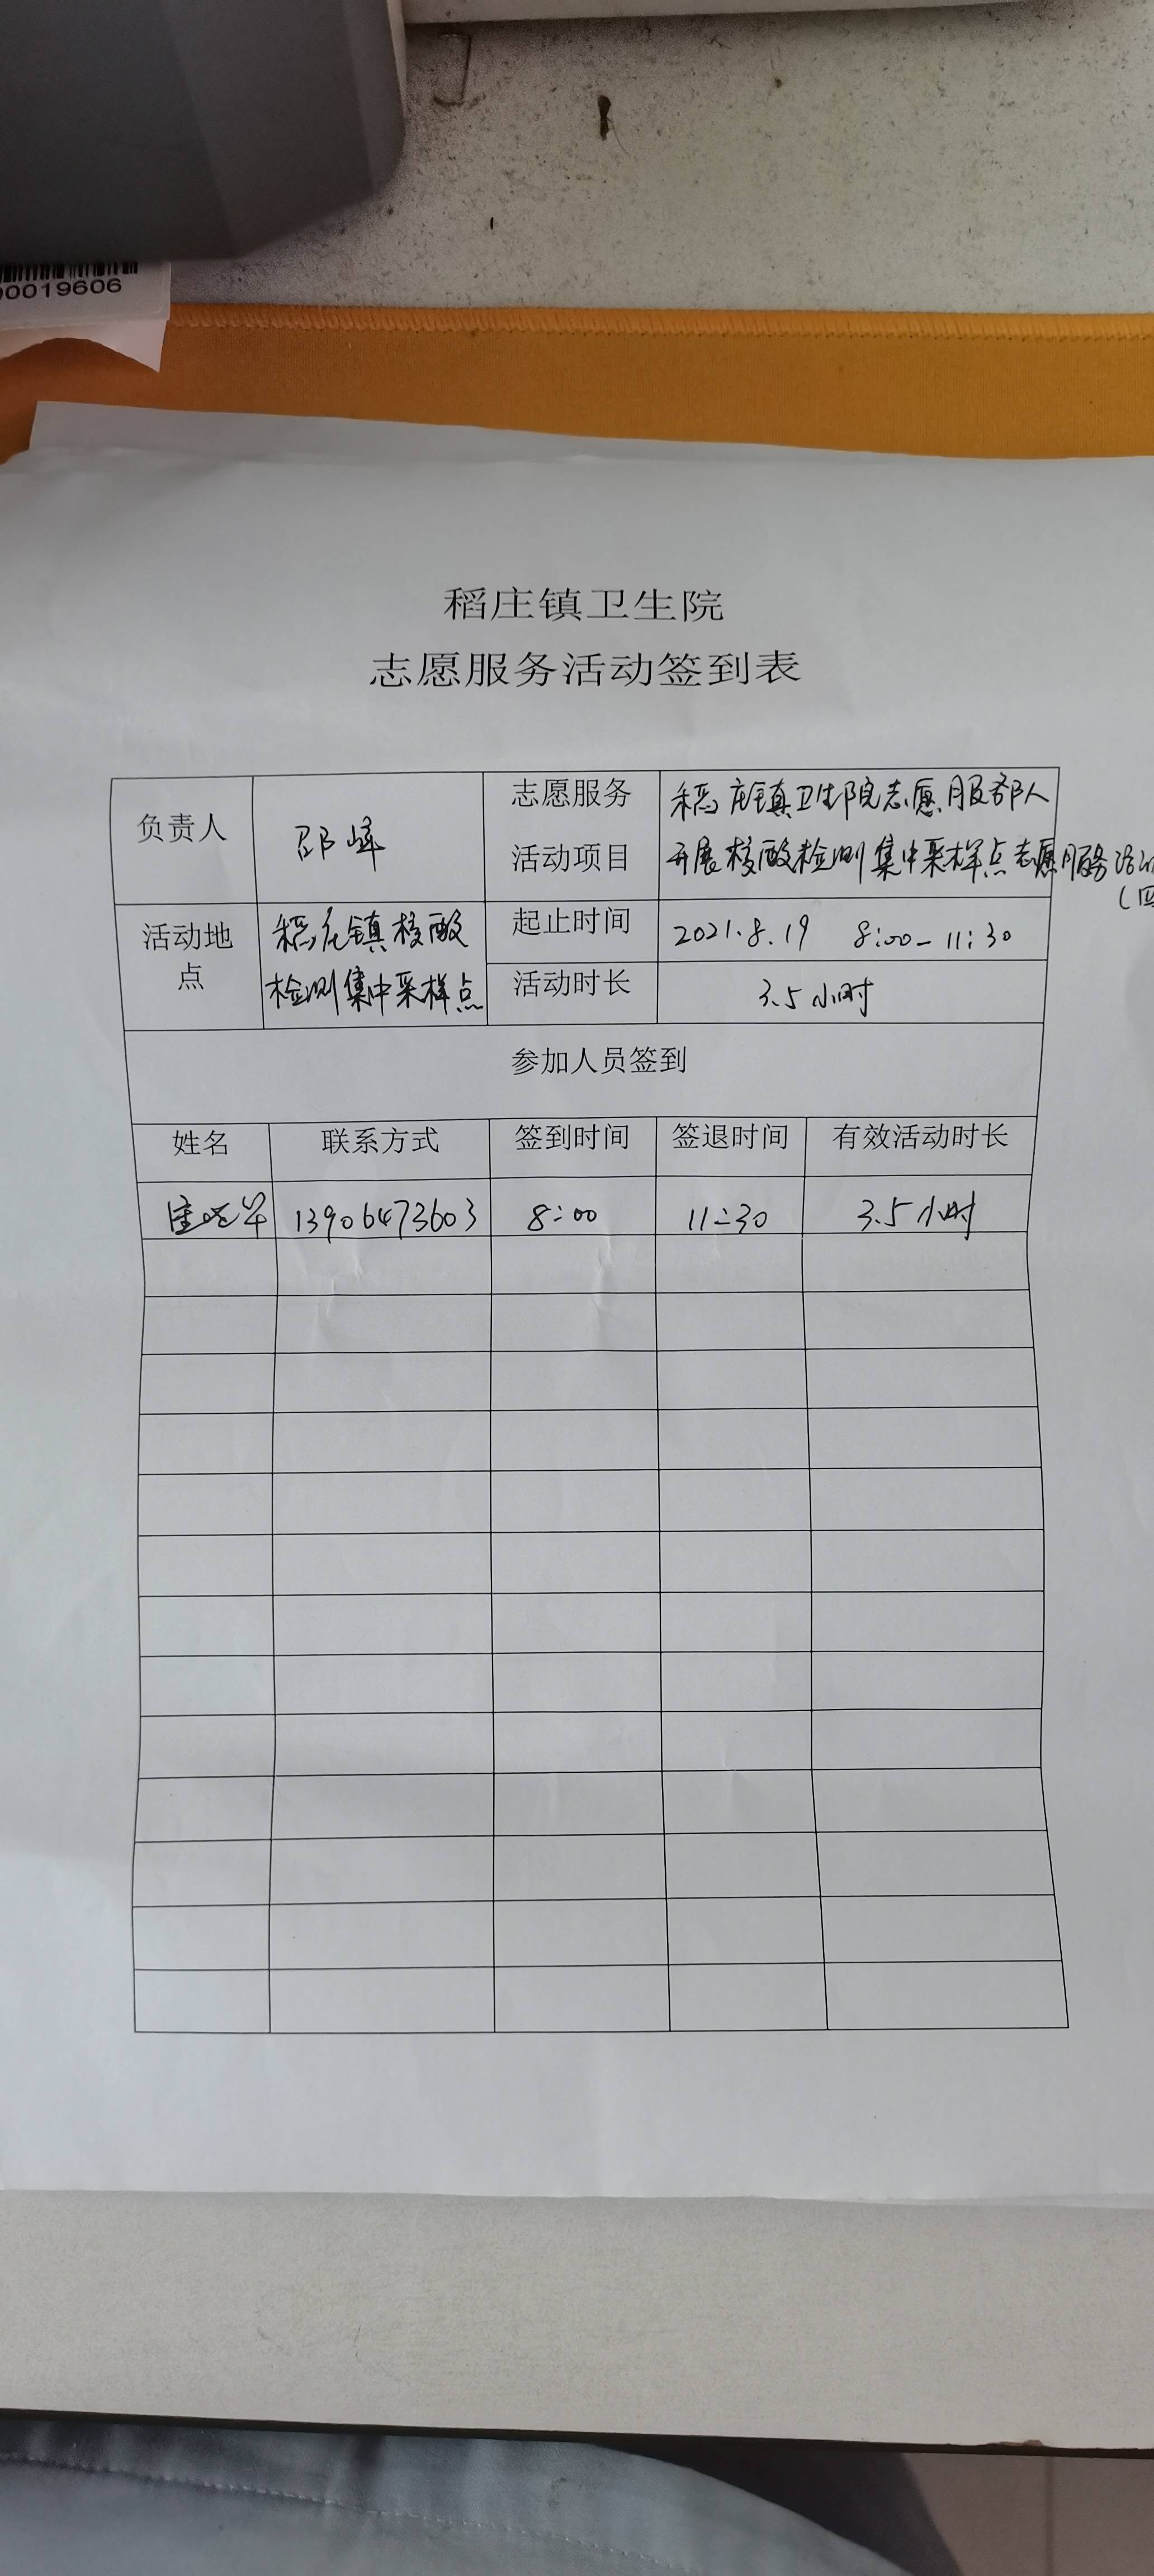 00019606
稻庄镇卫生院
志愿服务活动签到表
负责人
邵峰
志愿服务
活动项目
稻庄镇卫生院志愿服务队人
开展核酸检测集中采样点志愿服务活动
(四
活动地
点
稻庄镇核酸
检测集中采样点
起止时间
2021.8.19 8:00-11:30
活动时长
3.5小时
参加人员签到
姓名 联系方式 签到时间 签退时间 有效活动时长
13906473603 8:00 11:30 3.5小时